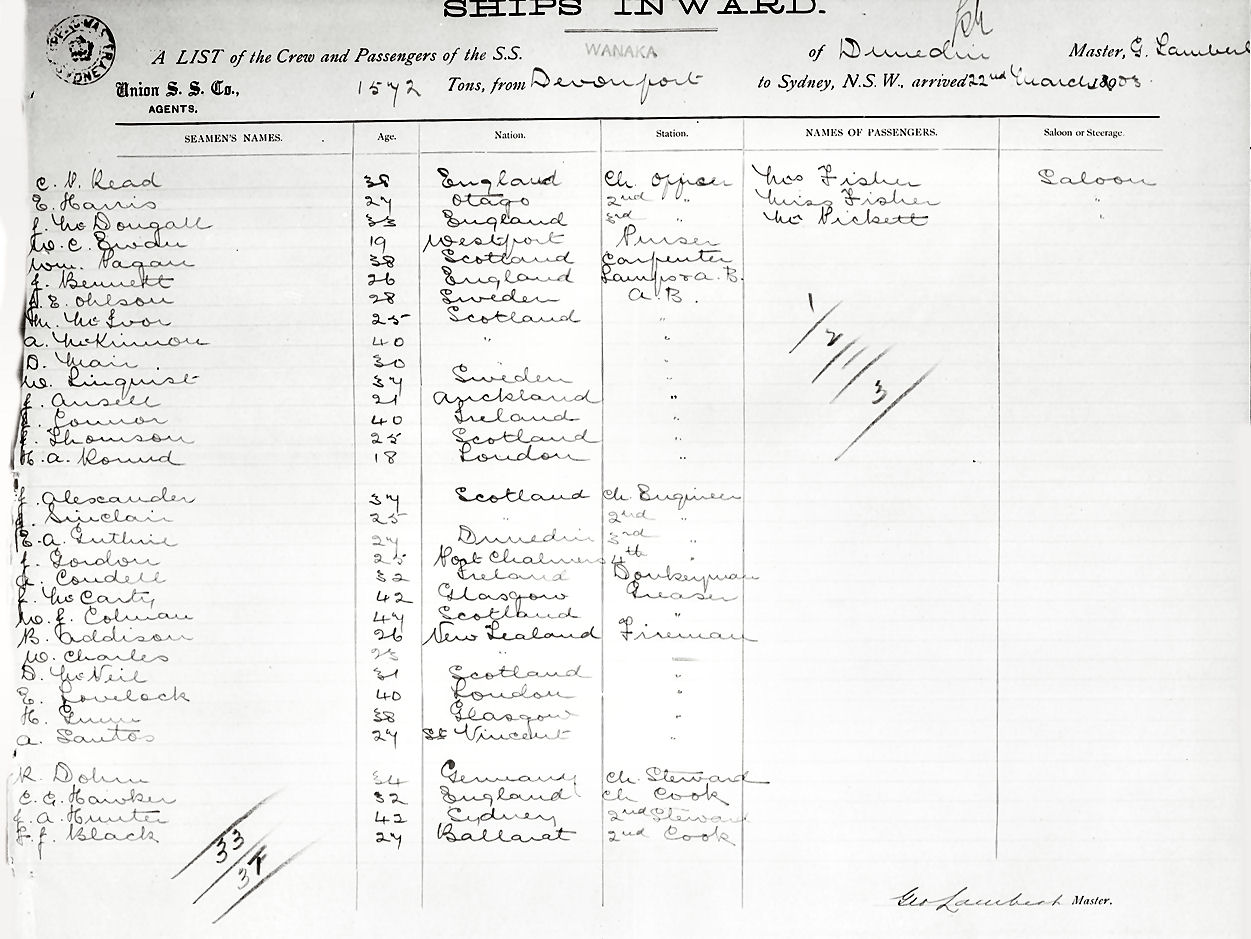 SHIPS INWARD.
A LIST of the Crew and Passengers of the S.S. WANAKA of Dunedin Master, G. Lambert
Union S. S. Co., 1572 Tons, from Devonport to Sydney, N.S.W., arrived 22nd March 1903
AGENTS.
SEAMEN'S NAMES. Age. Nation. Station. NAMES OF PASSENGERS. Saloon or Steerage.
C. V. Read 38 England Ch. Officer Mrs Fisher Saloon
E. Harris 27 Otago 2nd " Miss Fisher "
J. McDougall 33 England 3rd " Mr Pickett "
W. C. Ewan 19 Westport Purser
Wm. Pagan 38 Scotland Carpenter
J. Bennett 26 England Lamps & A.B.
E. Ohlson 28 Sweden A.B.
M. McIvor 25 Scotland "
A. McKinnon 40 " "
D. Mair 30 "
W. Linquist 37 Sweden "
J. Ansell 21 Auckland "
Connor 40 Ireland "
Thomson 25 Scotland "
H. A. Round 18 London "
1/2/11/3
J. Alexander 37 Scotland Ch. Engineer
J. Sinclair 25 " 2nd "
E. A. Guthrie 27 Dunedin 3rd "
J. Gordon 25 Port Chalmers 4th "
A. Condell 32 Ireland Donkeyman
J. McCarty 42 Glasgow Greaser
W. J. Colman 47 Scotland "
B. Addison 26 New Zealand Fireman
W. Charles 23 "
D. McNeil 31 Scotland "
E. Lovelock 40 London "
H. Gunn 38 Glasgow "
A. Santos 27 St Vincent "
R. Dohrn 34 Germany Ch. Steward
C. G. Hawker 32 England Ch Cook
J. A. Hunter 42 Sydney 2nd Steward
J. Black 27 Ballarat 2nd Cook
33
34
Geo Lambert Master.